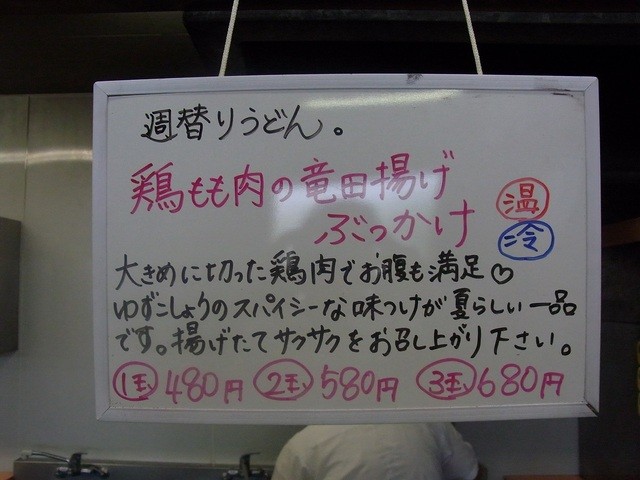 週替りうどん。
鶏もも肉の竜田揚げ
ぶっかけ
温
冷
大きめに切った鶏肉でお腹も満足♡
ゆずこしょうのスパイシーな味つけが夏らしい一品
です。揚げたてサクサクをお召し上がり下さい。
1玉 480円 2玉 580円 3玉 680円